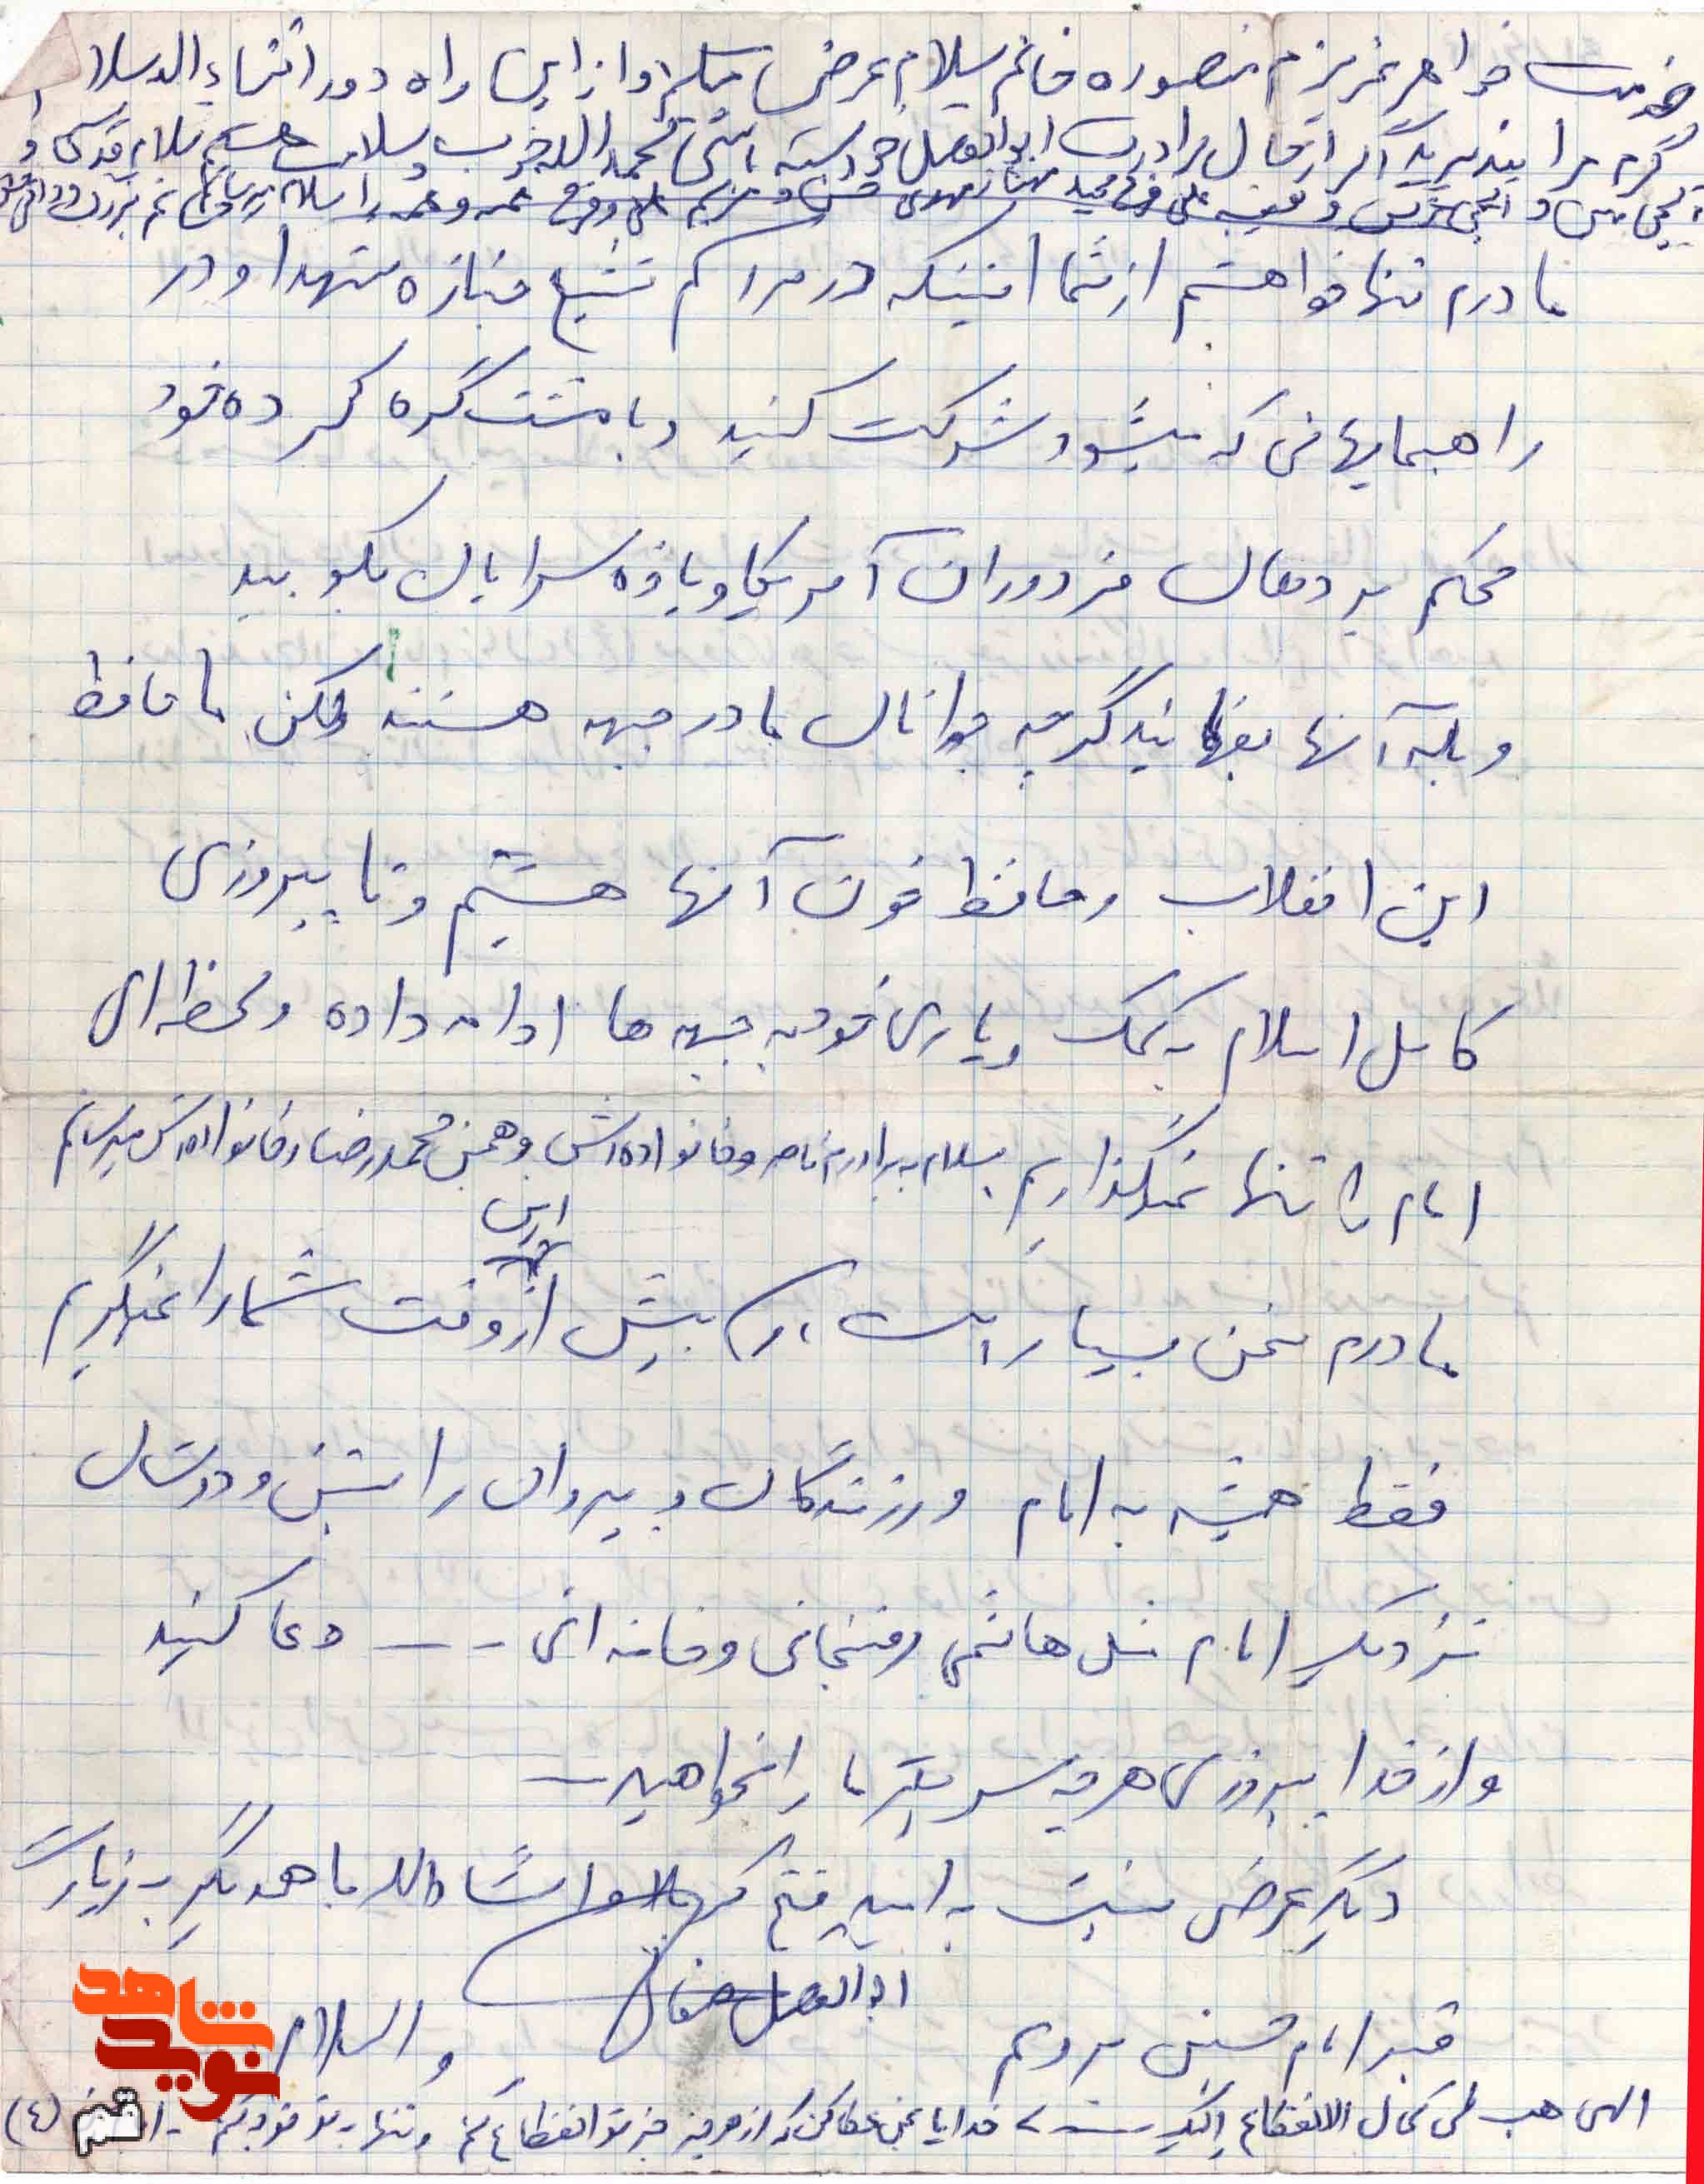 خدمت خواهر عزیزم منصوره خانم سلام عرض میکنم و از این راه دور انشاءالله سلام
گرم مرا بپذیرید اگر از حال برادرت ابوالفضل خواسته باشی بحمدالله خوب و سلامت هستم سلام
علی و فرخ عمه و عمه را سلام میرسانم
مادرم تنها خواهشم از شما اینیکه در مراسم تشیع جنازه شهدا و در
راهپمایهائی که میشود شرکت کنید و با مشت گره کرده خود
محکم بر دهان مزدوران آمریکا و یاوه سرایان بکوبید
و بله آنها بفهمانید گرچه جوانان ما در جبهه هستند ولکن ما حافظ
این انقلاب و حافظ خون آنها هستیم و تا پیروزی
کامل اسلام به کمک و یاری خود به جبهه ها ادامه داده و لحظه ای
امام را تنها نمیگذاریم سلام به برادرم ناصر و خانواده اش و همین محمدرضا و خانواده اش میرسانم
مادرم سخن بسیار است بیش از این وقت شما را نمیگیرم
فقط همیشه به امام و رزمندگان و پیروان راستین و دوستان
نزدیک امام مثل هاشمی رفسنجانی و خامنه ائی - - - دعا کنید
و از خدا پیروزی هر چه سریعتر ما را بخواهید
دیگر عرض نیست به امید فتح کربلا و انشاءالله با همدیگر به زیارت
قبر امام حسین برویم
ابوالفضل
والسلام
الهی هب لی کمال الانقطاع الیک خدایا بمن عطا کن که از هر چیز جز تو انقطاع کنم و تنها به تو خود کنم (٤)
شاهد
نوید
قم